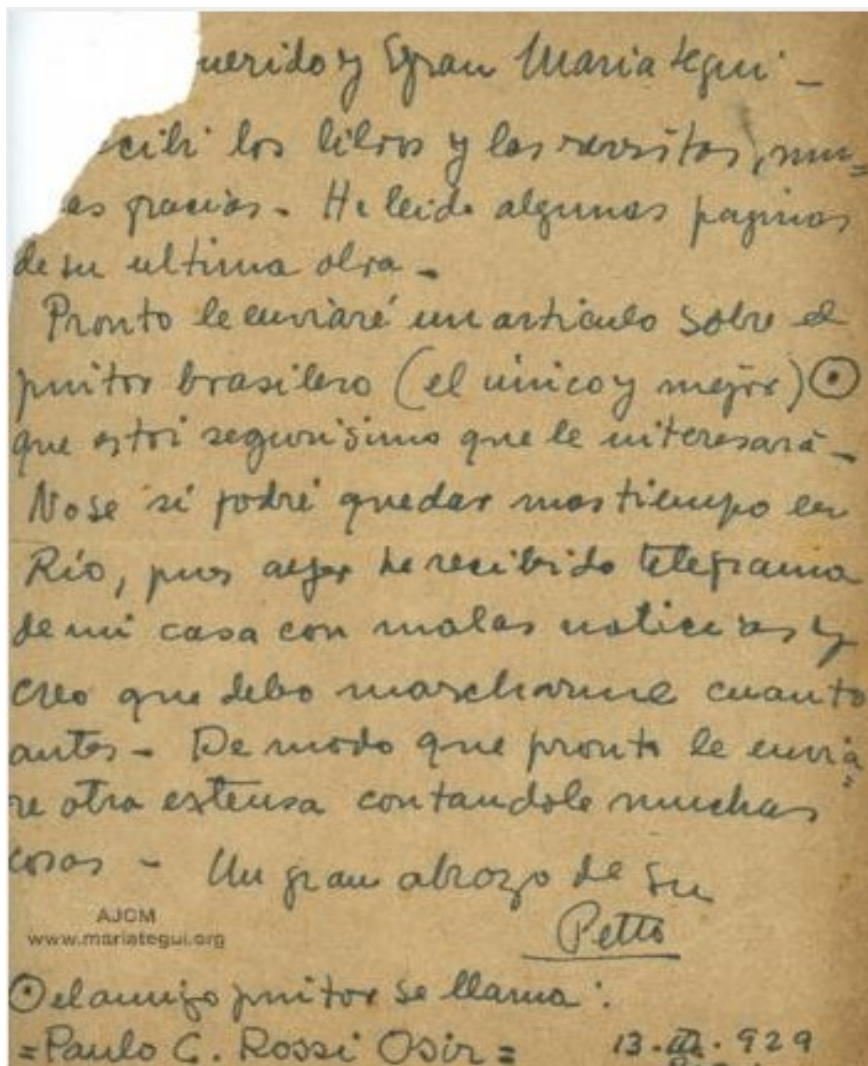 uerido y gran Mariategui -
cibi los libros y las revistas, mu=
as gracias - He leido algunas paginas
de su ultima obra -
Pronto le enviaré un articulo sobre el
pintor brasilero (el unico y mejor) ⊙
que estoi segurisimo que le interesará -
No se si podré quedar mas tiempo en
Río, pues ayer he recibido telegrama
de mi casa con malas noticias y
creo que debo marcharme cuanto
antes - De modo que pronto le envia=
re otra extensa contandole muchas
cosas - Un gran abrazo de su
Petto
AJCM
www.mariategui.org
⊙ el amigo pintor se llama:
=Paulo C. Rossi Osir= 13 - III - 929